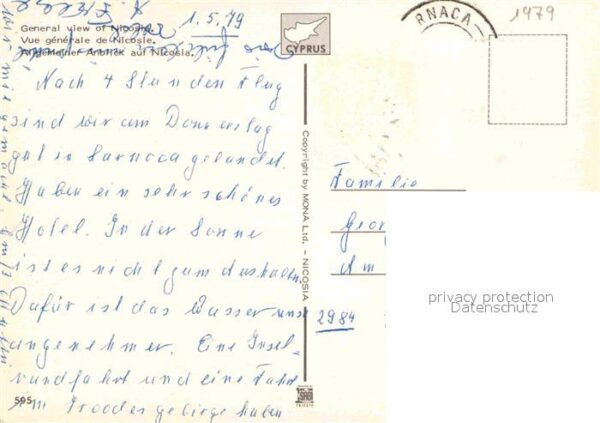 1.5.79
General view of Nicosia.
Vue générale de Nicosie.
Allgemeiner Anblick auf Nicosia.
Nach 4 Stunden Flug
sind wir am Donnerstag
gut in Larnaca gelandet.
Haben ein sehr schönes
Hotel. In der Sonne
ist es nicht zum aushalten.
Dafür ist das Wasser
angenehmer. Eine Insel-
rundfahrt und eine Fahrt
im Troodosgebirge haben
595
CYPRUS
Copyright by MONA Ltd. - NICOSIA
RNACA
1979
Familie
Georg
Am
2984
privacy protection
Datenschutz